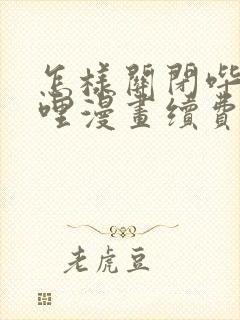 怎樣關閉哔
哩漫畫續費
老虎豆